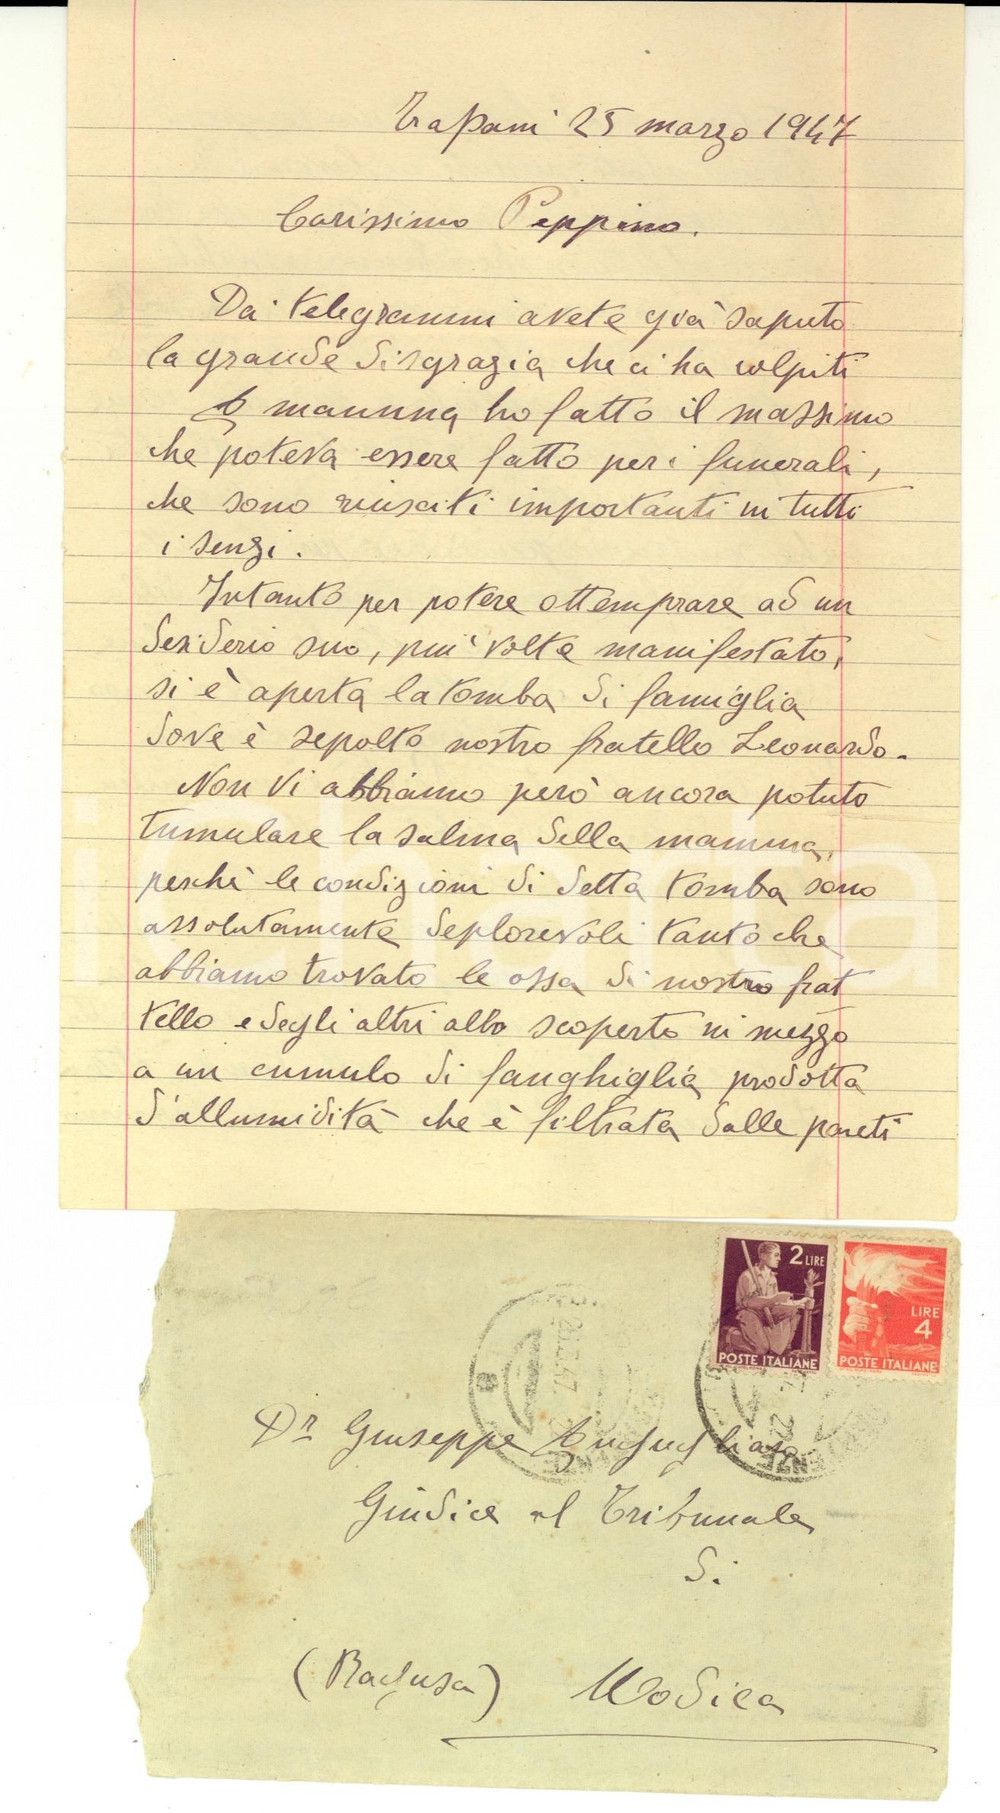 Trapani 25 marzo 1947
Carissimo Peppino.
Dai telegrammi avete già saputo
la grande disgrazia che ci ha colpiti
A mamma ho fatto il massimo
che poteva essere fatto per i funerali,
che sono riusciti importanti in tutti
i sensi.
Intanto per potere ottemprare ad un
desiderio suo, più volte manifestato,
si è aperta la tomba di famiglia
dove è sepolto nostro fratello Leonardo.
Non vi abbiamo però ancora potuto
tumulare la salma della mamma,
perchè le condizioni di detta tomba sono
assolutamente deplorevoli tanto che
abbiamo trovato le ossa di nostro frat
tello e degli altri allo scoperto in mezzo
a un cumulo di fanghiglia prodotta
d'allumidità che è filtrata dalle pareti
2 LIRE
POSTE ITALIANE
LIRE
4
POSTE ITALIANE
Dr Giuseppe
Giudice al Tribunale
di
(Ragusa) Modica